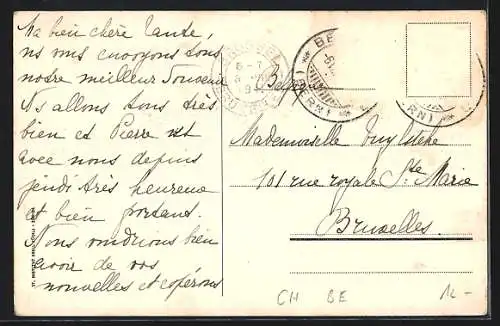 Ma bien chère Tante,
ns vous envoyons tous
notre meilleur souvenir
Ns allons tous très
bien et Pierre est
avec nous depuis
jeudi très heureux
et bien portant.
Nous voudrions bien
avoir de vos
nouvelles et espérons
6-7
BE
(BERN)
RN)
Mademoiselle
101 rue royale Ste Marie
Bruxelles.
CH BE
12-